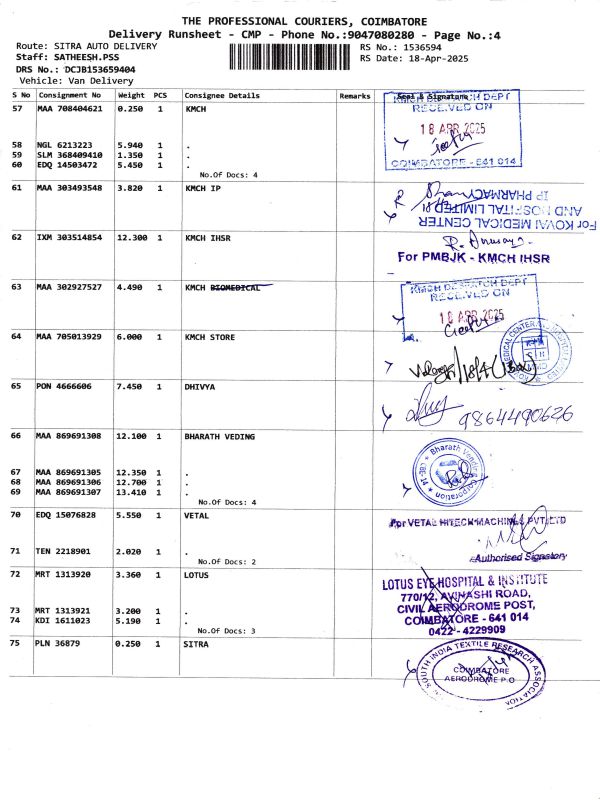 THE PROFESSIONAL COURIERS, COIMBATORE
Delivery Runsheet - CMP - Phone No.:9047080280 - Page No.:4
Route: SITRA AUTO DELIVERY
RS No.: 1536594
Staff: SATHEESH.PSS
RS Date: 18-Apr-2025
DRS No.: DCJB153659404
Vehicle: Van Delivery
S No Consignment No Weight PCS Consignee Details Remarks Seal & Signature
57 MAA 708404621 0.250 1 KMCH
KMCH DESPATCH DEPT
RECEIVED ON
18 APR 2025
COIMBATORE - 641 014
58 NGL 6213223 5.940 1 .
59 SLM 368409410 1.350 1 .
60 EDQ 14503472 5.450 1 .
No.Of Docs: 4
61 MAA 303493548 3.820 1 KMCH IP
For KOVAI MEDICAL CENTER
AND HOSPITAL LIMITED
IP PHARMACY
62 IXM 303514854 12.300 1 KMCH IHSR
For PMBJK - KMCH IHSR
63 MAA 302927527 4.490 1 KMCH BIOMEDICAL
KMCH DESPATCH DEPT
RECEIVED ON
18 APR 2025
64 MAA 705013929 6.000 1 KMCH STORE
65 PON 4666606 7.450 1 DHIVYA
9864490626
66 MAA 869691308 12.100 1 BHARATH VEDING
Bharath Vending Corporation
67 MAA 869691305 12.350 1 .
68 MAA 869691306 12.700 1 .
69 MAA 869691307 13.410 1 .
No.Of Docs: 4
70 EDQ 15076828 5.550 1 VETAL
For VETAL HITECH MACHINES PVT LTD
Authorised Signatory
71 TEN 2218901 2.020 1 .
No.Of Docs: 2
72 MRT 1313920 3.360 1 LOTUS
LOTUS EYE HOSPITAL & INSTITUTE
770/12, AVINASHI ROAD,
CIVIL AERODROME POST,
COIMBATORE - 641 014
0422 - 4229909
73 MRT 1313921 3.200 1 .
74 KDI 1611023 5.190 1 .
No.Of Docs: 3
75 PLN 36879 0.250 1 SITRA
SOUTH INDIA TEXTILE RESEARCH ASSOCIATION
COIMBATORE
AERODROME P.O